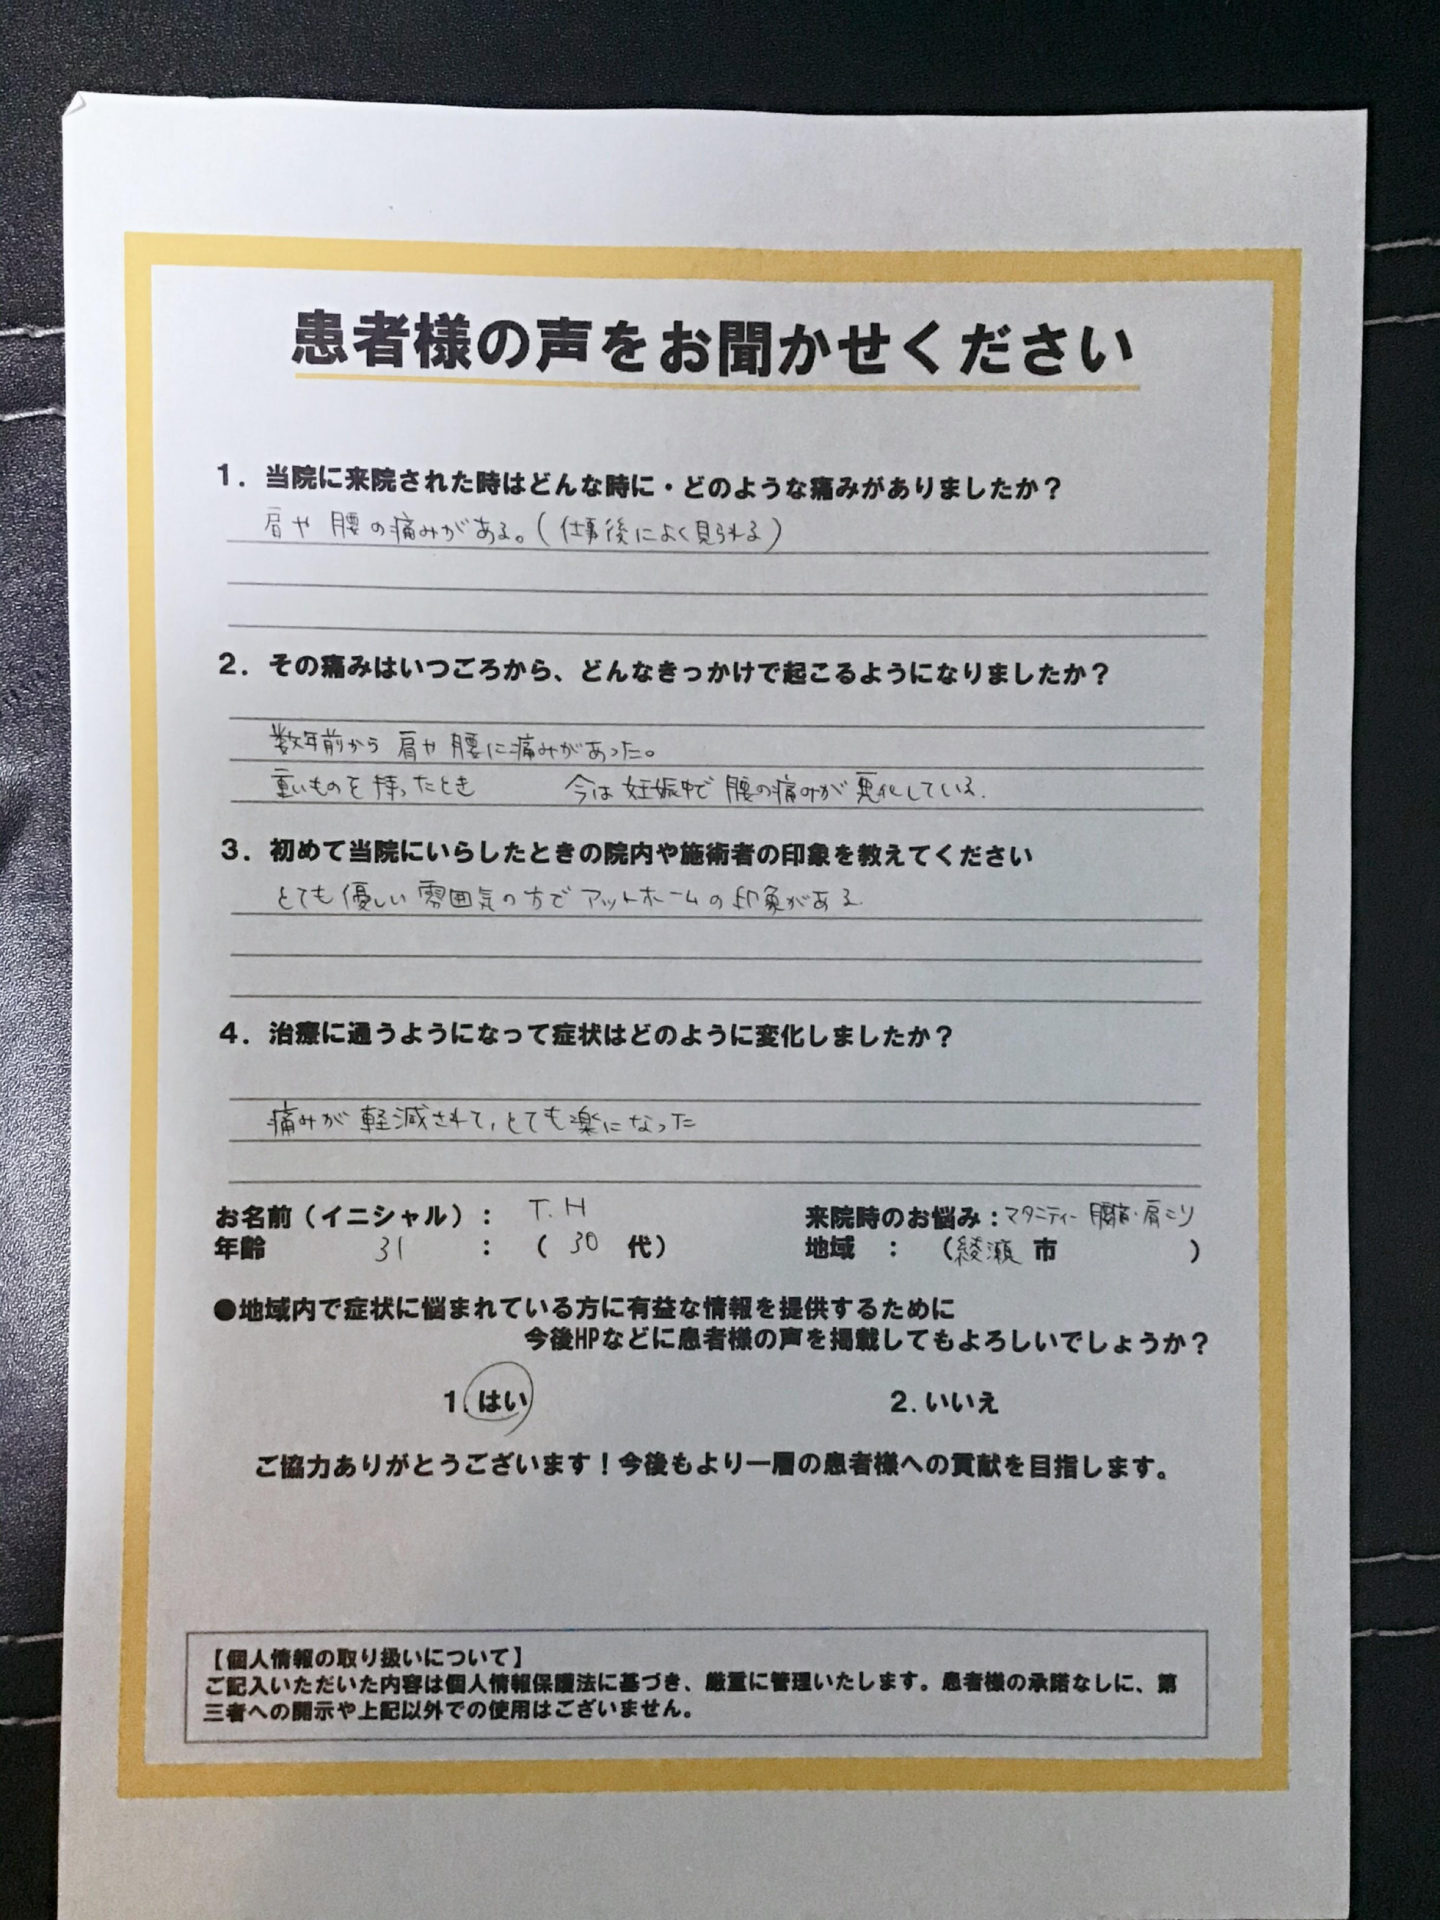 患者様の声をお聞かせください
1. 当院に来院された時はどんな時に・どのような痛みがありましたか？
肩や腰の痛みがある。(仕事後によく見られる)
2. その痛みはいつごろから、どんなきっかけで起こるようになりましたか？
数年前から肩や腰に痛みがあった。
重いものを持ったとき　今は妊娠中で腰の痛みが悪化している.
3. 初めて当院にいらしたときの院内や施術者の印象を教えてください
とても優しい雰囲気の方でアットホームの印象がある.
4. 治療に通うようになって症状はどのように変化しましたか？
痛みが軽減されて,とても楽になった
お名前（イニシャル）： T.H　来院時のお悩み：マタニティー腰痛・肩こり
年齢 31 ：（ 30 代）　地域 ：（綾瀬 市 ）
●地域内で症状に悩まれている方に有益な情報を提供するために
今後HPなどに患者様の声を掲載してもよろしいでしょうか？
1. はい　2. いいえ
ご協力ありがとうございます！今後もより一層の患者様への貢献を目指します。
【個人情報の取り扱いについて】
ご記入いただいた内容は個人情報保護法に基づき、厳重に管理いたします。患者様の承諾なしに、第
三者への開示や上記以外での使用はございません。